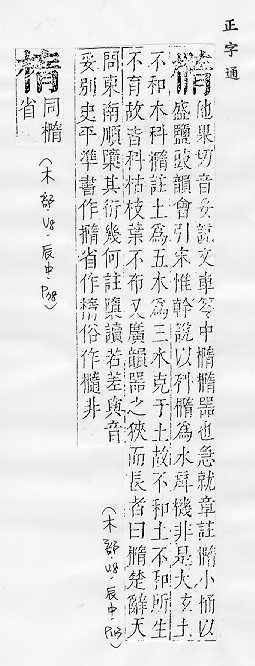 正字通
橢
他果切音妥說文車笭中橢橢器也急就章註橢小桶以
盛鹽豉韻會引宋惟幹說以科橢為水犀機非是太玄土
不和木科橢註土為五木為三木克于土故不和土不和所生
不育故皆科枯枝葉不布又廣韻器之狹而長者曰橢楚辭天
問東南順橢其衍幾何註橢讀若差與音
妥別史平準書作橢省作楕俗作𣜽非
(木部 U8.辰中.P.113)
楕
同橢
省
(木部 U8.辰中.P.38)